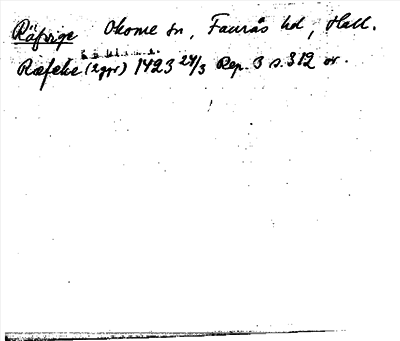 Räfvige Okome sn, Faurås hd, Hall.
Ræfeke (2 ggr) 1423 24/3 Rep. 3 s. 312 or.